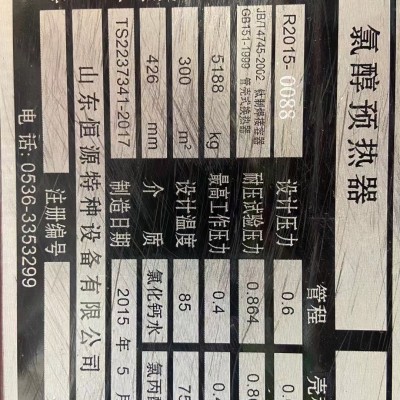 氯醇预热器
管程 壳
R2015-0088 设计压力 0.6
JB/T4745-2002 钛制焊接容器
GB151-1999 管壳式换热器
耐压试验压力 0.864
5188 kg 最高工作压力 0.4
300 m² 设计温度 85 75
426 mm 介 质 氯化钙水 氯丙
TS2237341-2017 制造日期 2015 年 5 月
山东恒源特种设备有限公司
注册编号
电话: 0536-3353299